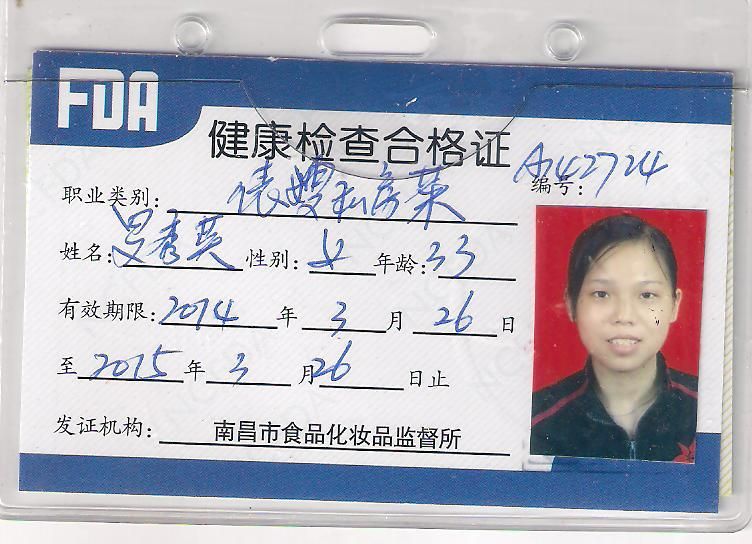 FDA
健康检查合格证
编号: A142724
职业类别: 俵嫂私房菜
姓名: 罗秀英 性别: 女 年龄: 33
有效期限: 2014 年 3 月 26 日
至 2015 年 3 月 26 日止
发证机构: 南昌市食品化妆品监督所